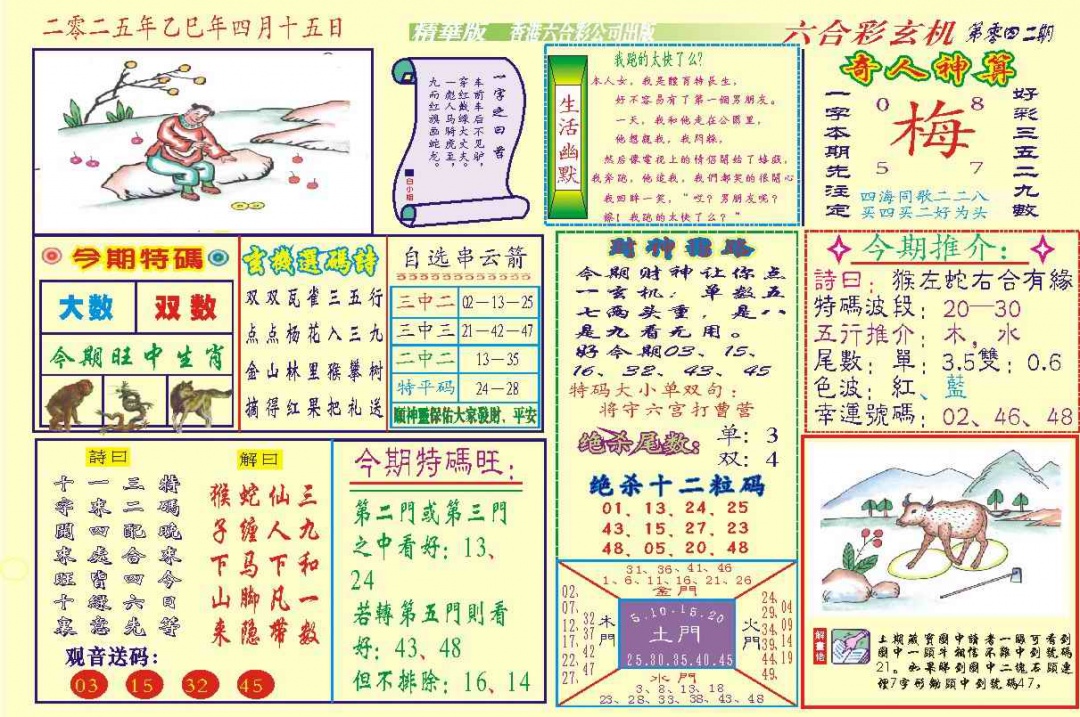 二零二五年乙巳年四月十五日
精華版 香港六合彩公司出版
六合彩玄机 第零四二期
一字之曰首
车前车后不见驴，
穿红戴绿大丈夫。
一彪人马骑虎至，
九面红旗画蛇龙。
白小姐
生活幽默
我跑的太快了么？
本人女，我是體育特長生，
好不容易有了第一個男朋友。
一天，我和他走在公園里，
他想親我，我閃躲，
然后像電視上的情侣開始了嬉戲，
我奔跑，他追我，我們都笑的很開心
我回眸一笑，“哎？男朋友呢？
擦！我跑的太快了么？”
奇人神算
一字本期先注定
0 8
梅
5 7
好彩三五二九數
四海同歌二二八
买四买二好为头
今期特碼
大数 双数
今期旺中生肖
玄機選碼詩
双双瓦雀三五行
点点杨花入三九
金山林里猴攀树
摘得红果把礼送
自选串云箭
三中二 02—13—25
三中三 21—42—47
二中二 13—35
特平码 24—28
願神靈保佑大家發財、平安
财神密路
今期财神让你点
一玄机：单数五
七两头重，是八
是九看无用。
好今期03、15、
16、32、43、45
特码大小单双句：
将守六宫打曹营
绝杀尾数： 单：3
双：4
绝杀十二粒码
01、13、24、25
43、15、27、23
48、05、20、48
今期推介：
詩曰：猴左蛇右合有緣
特碼波段：20—30
五行推介：木，水
尾數：單：3.5雙：0.6
色波：紅、藍
幸運號碼：02、46、48
詩曰
特碼晚來今日等
三二配合四六先
一來四處皆緣意
十字開來旺十裏
解曰
三九和一数
仙人下凡带
蛇缠马脚隐
猴子下山来
观音送码：
03 15 32 45
今期特碼旺：
第二門或第三門
之中看好：13、
24
若轉第五門則看
好：43、48
但不排除：16、14
31、36、41、46
1、6、11、16、21、26
金門
02、07、12、17、22、27、
32 37 42 47
木門
5.10.15.20
土門
25.30.35.40.45
火門
24、29、34、39、44、49
04 09 14 19
水門
3、8、13、18
23、28、33、38、43、48
解畫信
上期藏寶圖中讀者一眼可看到
圖中一頭牛相信不難中到號碼
21。如果解到圖中二塊石頭連
擔7字形鋤頭中到號碼47，